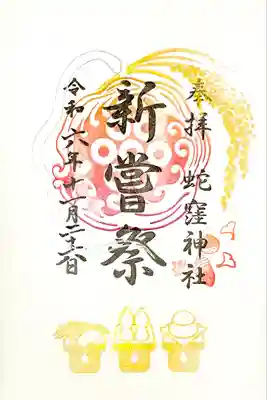 奉拝 蛇窪神社
新嘗祭
令和六年十一月二十三日